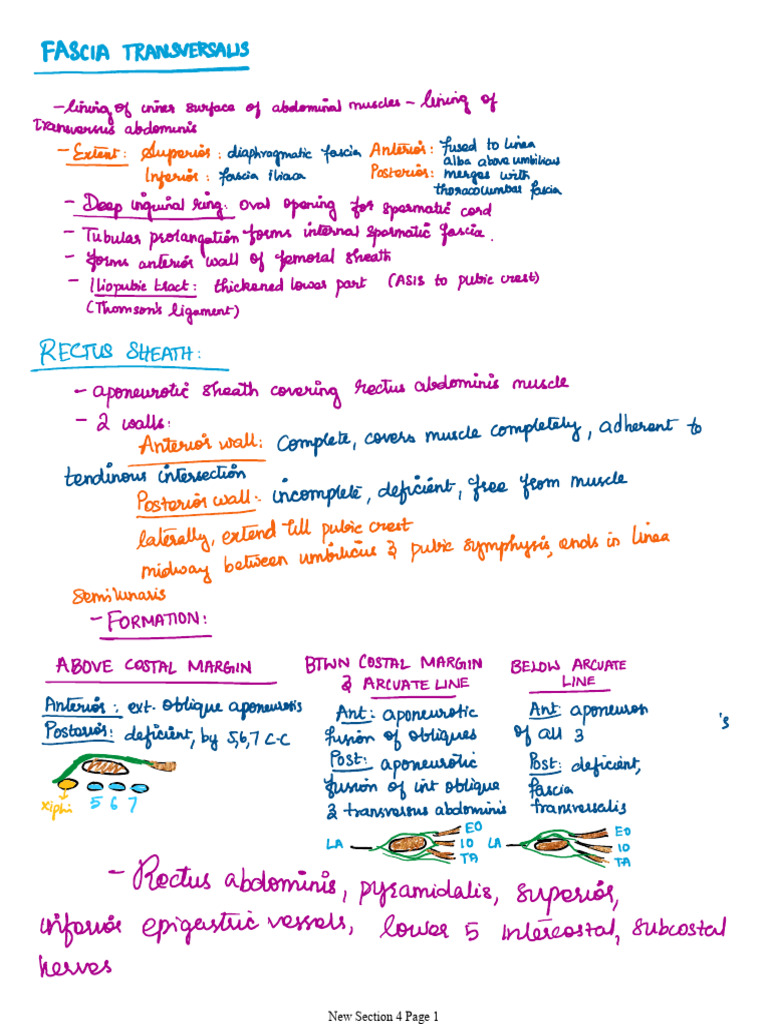 FASCIA TRANSVERSALIS
- lining of inner surface of abdominal muscles - lining of
transversus abdominis
- Extent: Superior: diaphragmatic fascia Anterior: fused to linea
alba above umbilicus
Inferior: fascia iliaca Posterior: merges with
thoracolumbar fascia
- Deep inguinal ring: oval opening for spermatic cord
- Tubular prolongation forms internal spermatic fascia.
- forms anterior wall of femoral sheath
- Iliopubic tract: thickened lower part (ASIS to pubic crest)
(Thomson's ligament)
RECTUS SHEATH:
- aponeurotic sheath covering rectus abdominis muscle
- 2 walls:
Anterior wall: Complete, covers muscle completely, adherent to
tendinous intersection
Posterior wall: incomplete, deficient, free from muscle
laterally, extend till pubic crest
midway between umbilicus & pubic symphysis, ends in linea
semilunaris
- FORMATION:
ABOVE COSTAL MARGIN
Anterior: ext. oblique aponeurosis
Posterior: deficient, by 5,6,7 C.C
xiphi 5 6 7
BTWN COSTAL MARGIN
& ARCUATE LINE
Ant: aponeurotic
fusion of obliques
Post: aponeurotic
fusion of int oblique
& transversus abdominis
LA EO
IO
TA
BELOW ARCUATE
LINE
Ant: aponeuron 's
of all 3
Post: deficient,
fascia
transversalis
LA EO
IO
TA
- Rectus abdominis, pyramidalis, superior,
inferior epigastric vessels, lower 5 intercostal, subcostal
nerves
New Section 4 Page 1